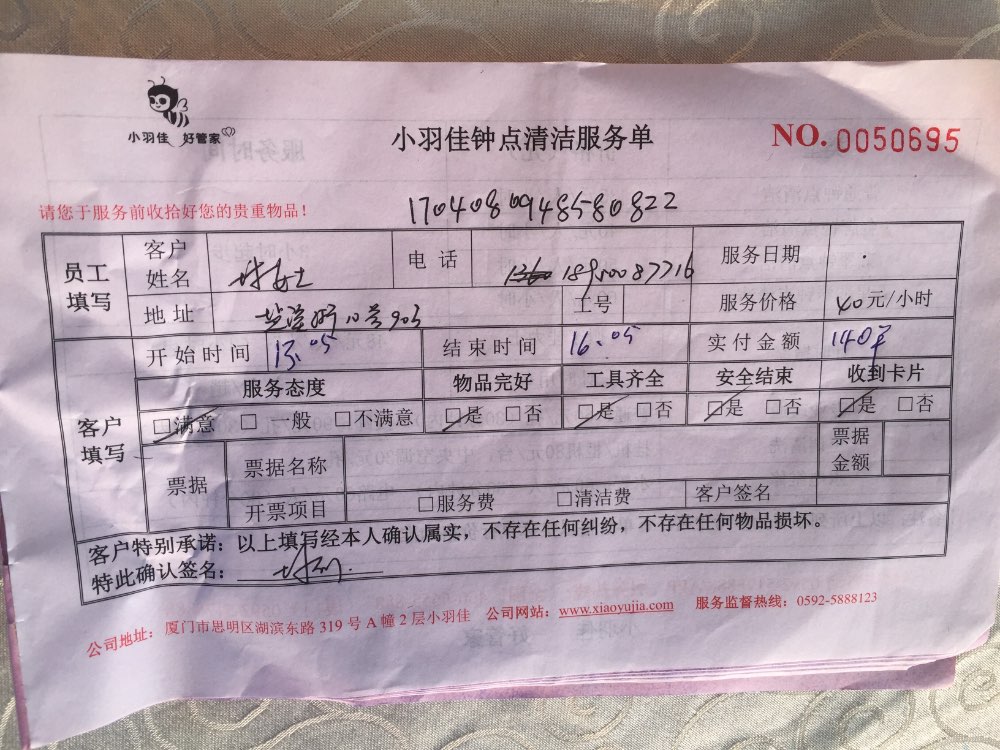 小羽佳 好管家
小羽佳钟点清洁服务单
NO. 0050695
请您于服务前收拾好您的贵重物品！
170408094858080822
员工填写
客户姓名 女士
电话 18950087716
服务日期
地址 10号903
工号
服务价格 40元/小时
客户填写
开始时间 13.05
结束时间 16.05
实付金额 140
服务态度 物品完好 工具齐全 安全结束 收到卡片
□满意 □一般 □不满意 □是 □否 □是 □否 □是 □否 □是 □否
票据
票据名称
票据金额
开票项目 □服务费 □清洁费 客户签名
客户特别承诺：以上填写经本人确认属实，不存在任何纠纷，不存在任何物品损坏。
特此确认签名：
公司地址：厦门市思明区湖滨东路 319 号 A 幢 2 层小羽佳 公司网站：www.xiaoyujia.com 服务监督热线：0592-5888123